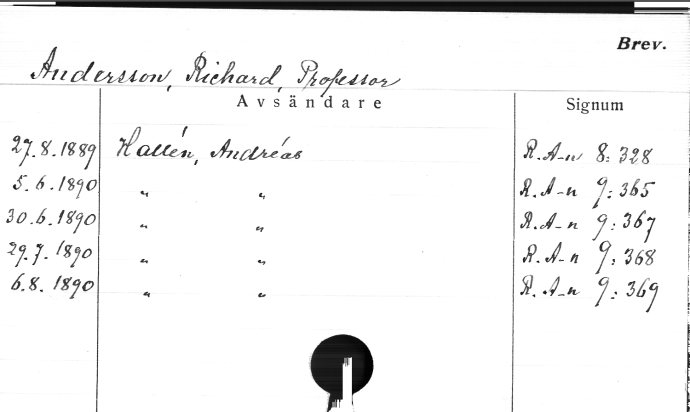 Brev.
Andersson, Richard, Professor
Avsändare Signum
27.8.1889 Hallén, Andréas R.A-n 8:328
5.6.1890 " " R.A-n 9:365
30.6.1890 " " R.A-n 9:367
29.7.1890 " " R.A-n 9:368
6.8.1890 " " R.A-n 9:369